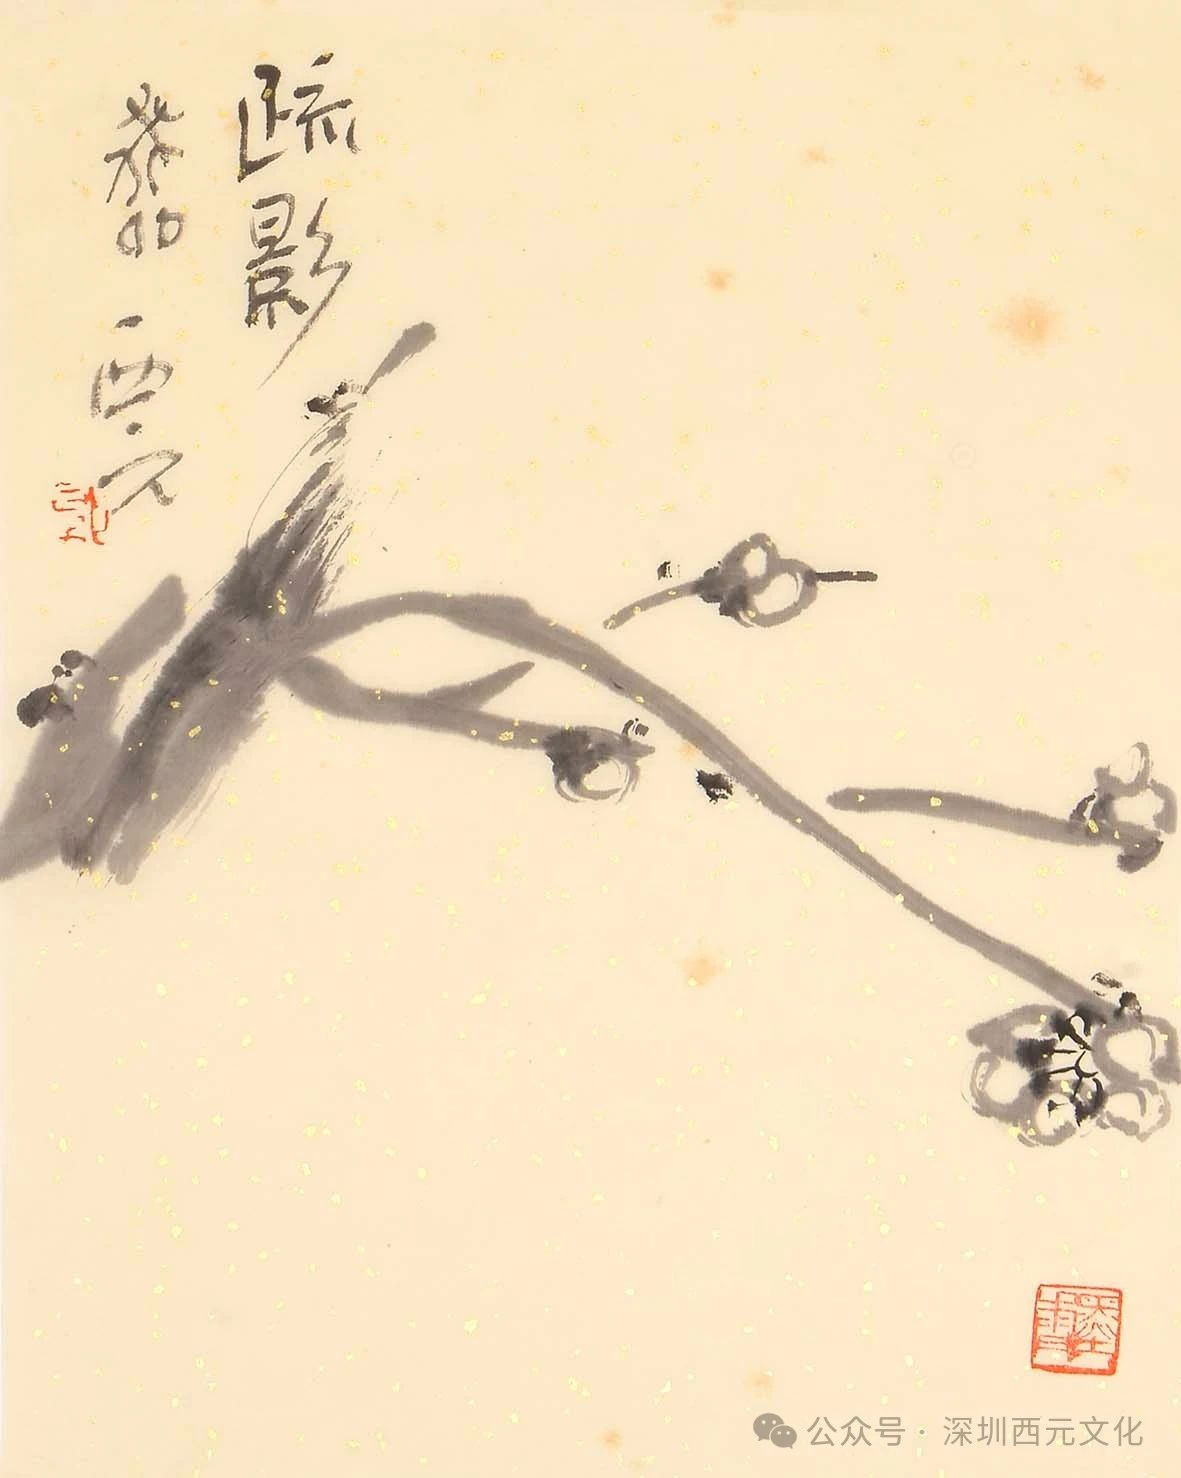 疏影
癸卯西元
公众号·深圳西元文化